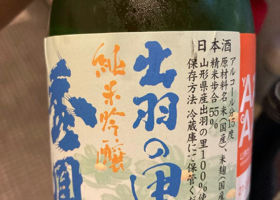 日本酒
アルコール分15度
原材料名 米(国産)、米麹(国産
精米歩合 55%
山形県産出羽の里100%使
保存方法 冷蔵庫にて保管くだ
出羽の里
純米吟醸
秀鳳